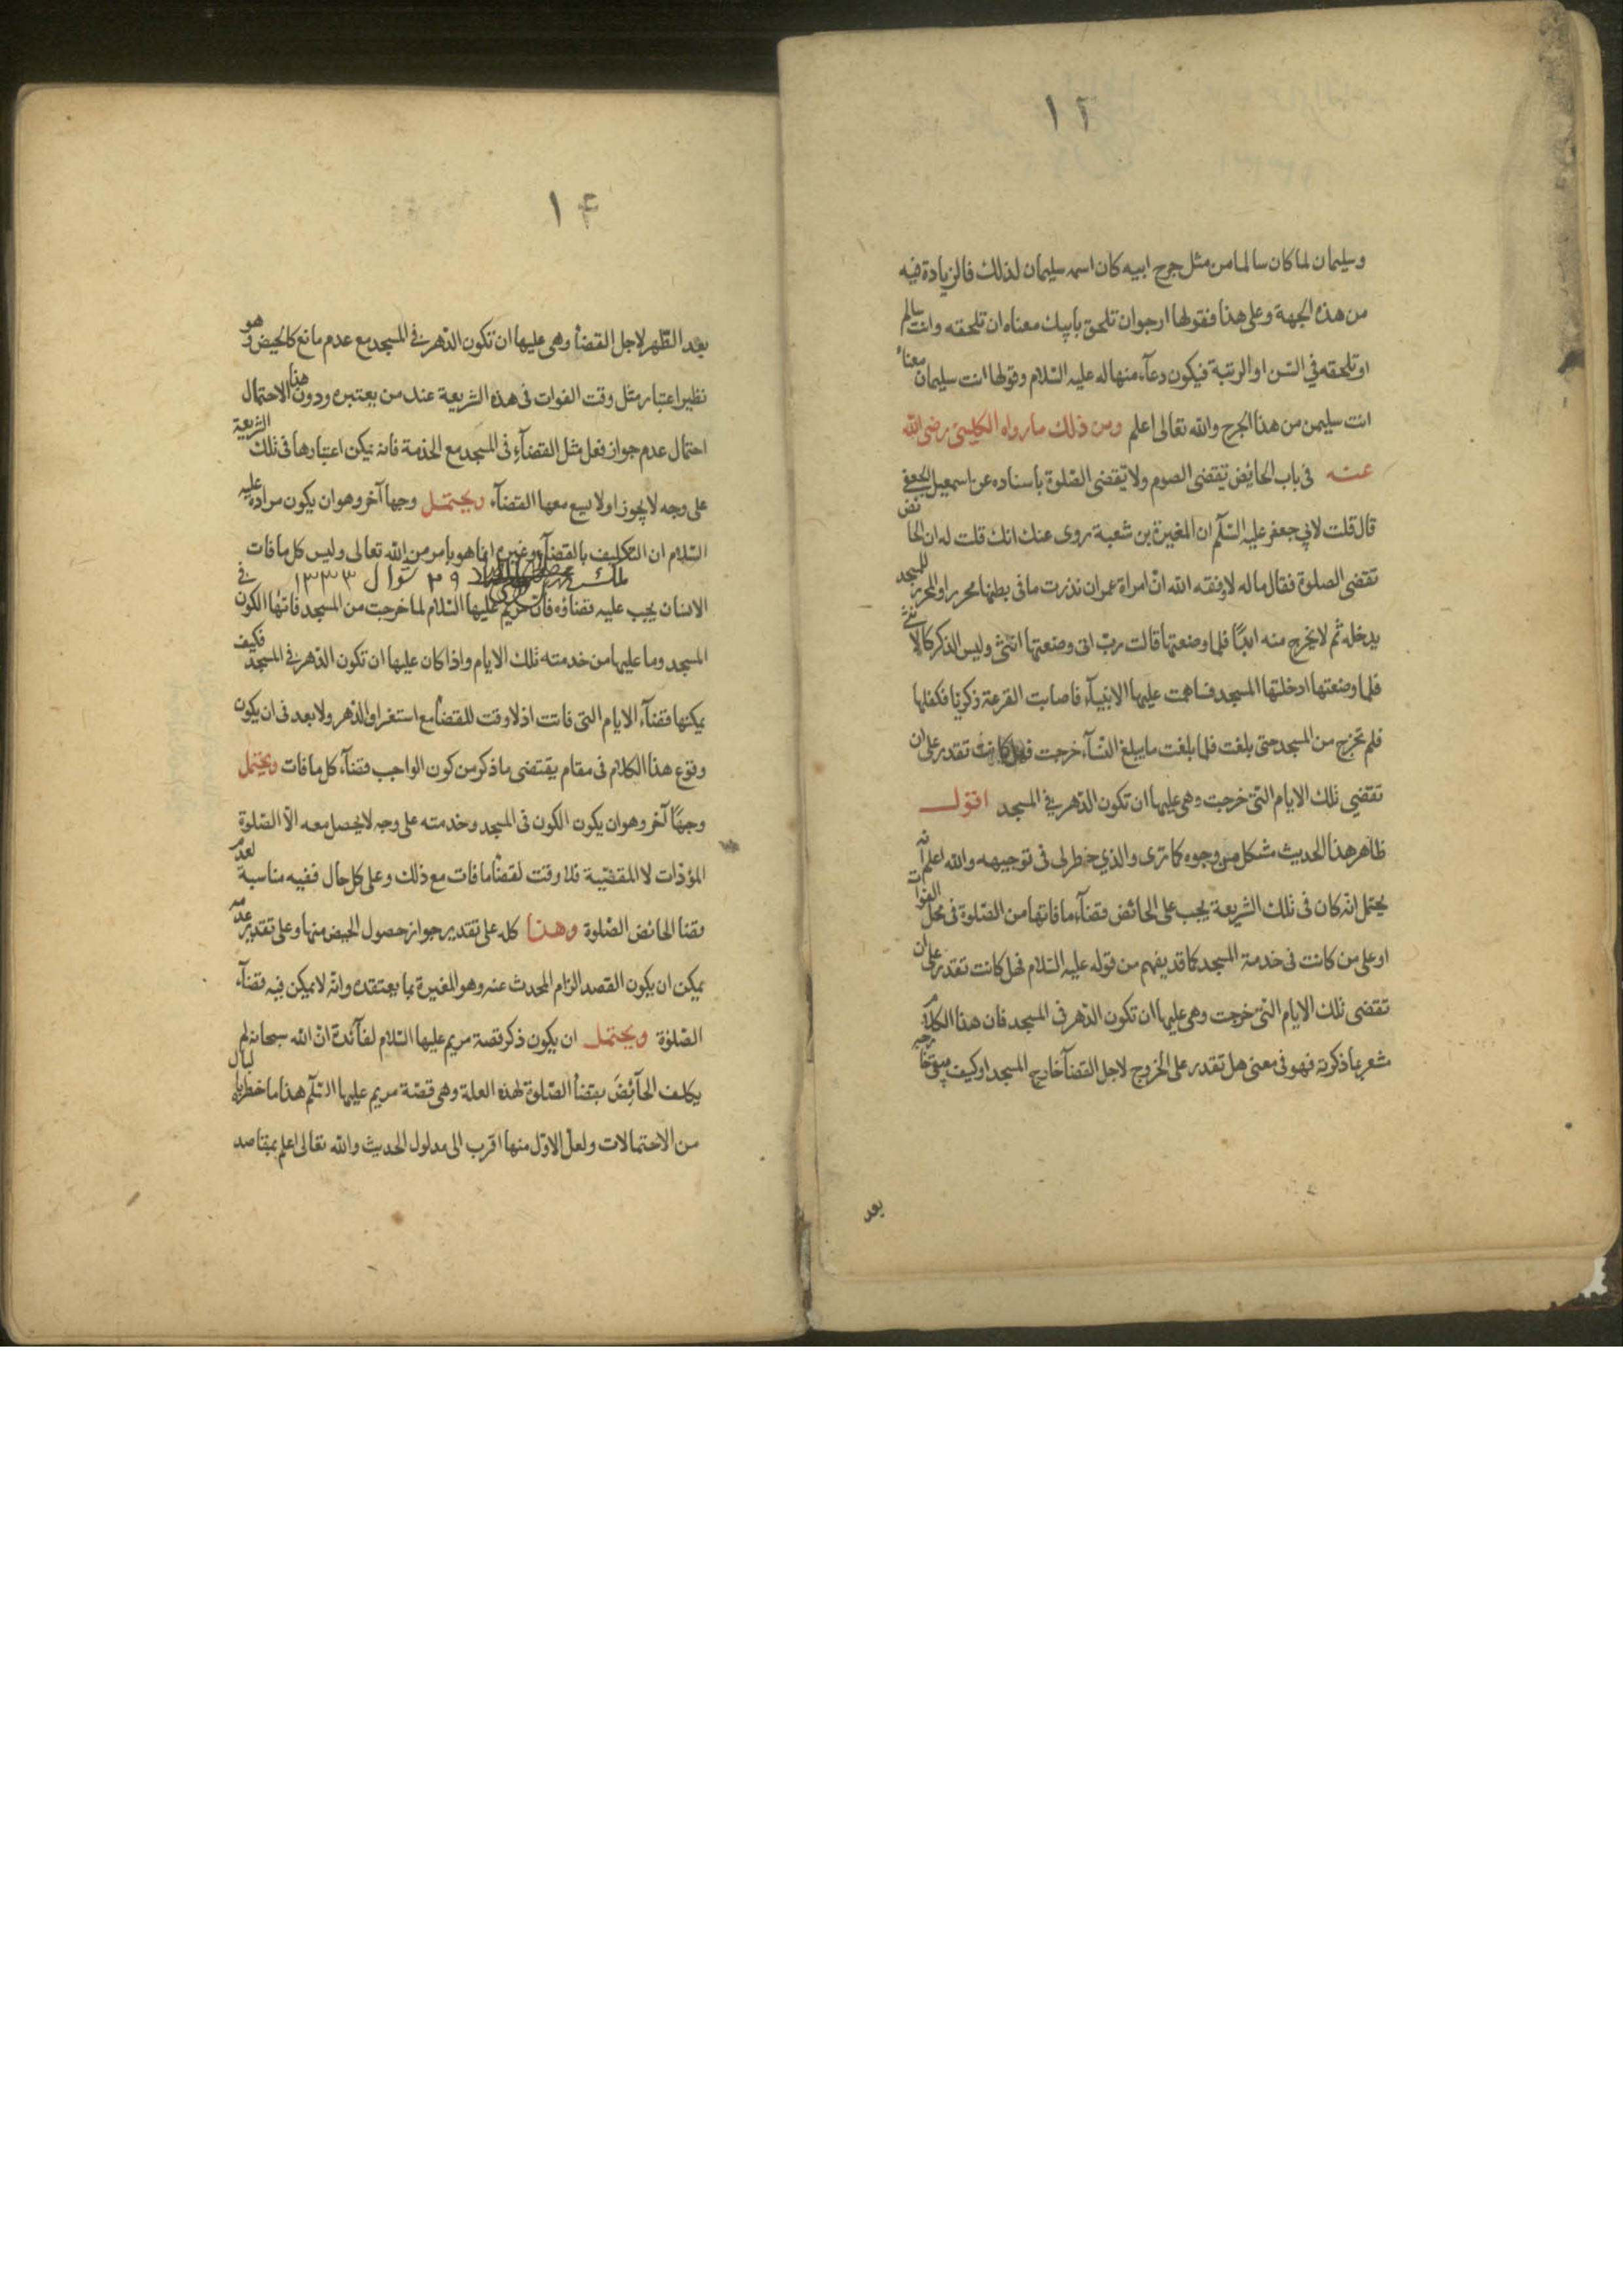 ١٢
وسليمان لما كان سالما من مثل جرح ابيه كان اسمه سليمان لذلك فالزيادة فيه
من هذه الجهة وعلى هذا فقولها ارجوان تلحق بابيك معناه ان تلحقه وانت سالم
او تلحقه في السّن او الرتبة فيكون دعآء منها له عليه السّلام وقولها انت سليمان معناه
انت سليمن من هذا الجرح والله تعالى اعلم ومن ذلك ما رواه الكلينى رضى الله
عنه فى باب الحائض تقضى الصوم ولا تقضى الصّلوة باسناده عن اسمعيل الجعفى
قال قلت لابي جعفر عليه السّلم ان المغيرة بن شعبة روى عنك انك قلت له ان الحائض
تقضى الصلوة فقال ما له لا وفقه الله انّ امراة عمران نذرت ما فى بطنها محررا والمحرر للمسجد
يدخله ثم لا يخرج منه ابدًا فلما وضعتها قالت ربّ انى وضعتها انثى وليس الذكر كالانثى
فلما وضعتها ادخلتها المسجد فساهمت عليها الانبيآء فاصابت القرعة زكريا فكفلها
فلم تخرج من المسجد حتى بلغت فلما بلغت ما يبلغ النسآء خرجت فهل كانت تقدر على ان
تقضي تلك الايام التى خرجت وهى عليها ان تكون الدّهر فى المسجد اقول
ظاهر هذا الحديث مشكل من وجوه كما ترى والذي خطر لى فى توجيهه والله اعلم انه
يحتمل انه كان فى تلك الشريعة يجب على الحائض قضآء ما فاتها من الصّلوة فى محل الفوات
او على من كانت فى خدمة المسجد كما قد يفهم من قوله عليه السّلام فهل كانت تقدر على ان
تقضى تلك الايام التى خرجت وهى عليها ان تكون الدّهر فى المسجد فان هذا الكلام
شعر بما ذكرته فهو فى معنى هل تقدر على الخروج لاجل القضآ خارج المسجد او كيف
بعد
١٤
بعد الطّهر لاجل القضآ وهى عليها ان تكون الدّهر فى المسجد مع عدم مانع كالحيض وهو
نظير اعتبار مثل وقت الفوات فى هذه الشريعة عند من يعتبره ودون هذا الاحتمال
احتمال عدم جواز فعل مثل القضآء فى المسجد مع الخدمة فانه يمكن اعتبارها فى تلك الشريعة
على وجه لا يجوز او لا يسع معها القضآء ويحتمل وجها آخر وهو ان يكون مراده عليه
السّلام ان التكليف بالقضآء وغيره انما هو بامر من الله تعالى وليس كل ما فات
ملك ٢٩ شوال ١٣٣٣
الانسان يجب عليه قضاؤه فان مريم عليها السّلام لما خرجت من المسجد فاتها الكون فى
المسجد وما عليها من خدمته تلك الايام واذا كان عليها ان تكون الدّهر فى المسجد فكيف
يمكنها قضآء الايام التى فاتت اذ لا وقت للقضآ مع استغراق الدّهر ولا بعد فى ان يكون
وقوع هذا الكلام فى مقام يقتضى ما ذكر من كون الواجب قضآء كل ما فات ويحتمل
وجهًا آخر وهو ان يكون الكون فى المسجد وخدمته على وجه لا يحصل معه الّا الصّلوة
المؤدّات لا المقضّية فلا وقت لقضآ ما فات مع ذلك وعلى كل حال ففيه مناسبة لعدم
قضا الحائض الصّلوة وهذا كله على تقدير جواز حصول الحيض منها وعلى تقدير عدمه
يمكن ان يكون القصد الزام المحدث عنه وهو المغيرة بما يعتقده وانه لا يمكن فيه قضآء
الصّلوة ويحتمل ان يكون ذكر قصة مريم عليها السّلام لفآئدة انّ الله سبحانه لم
يكلف الحآئضَ بقضآ الصّلوة لهذه العلة وهى قصّة مريم عليها السّلم هذا ما خطر بالبال
من الاحتمالات ولعل الاوّل منها اقرب الى مدلول الحديث والله تعالى اعلم بمقاصد